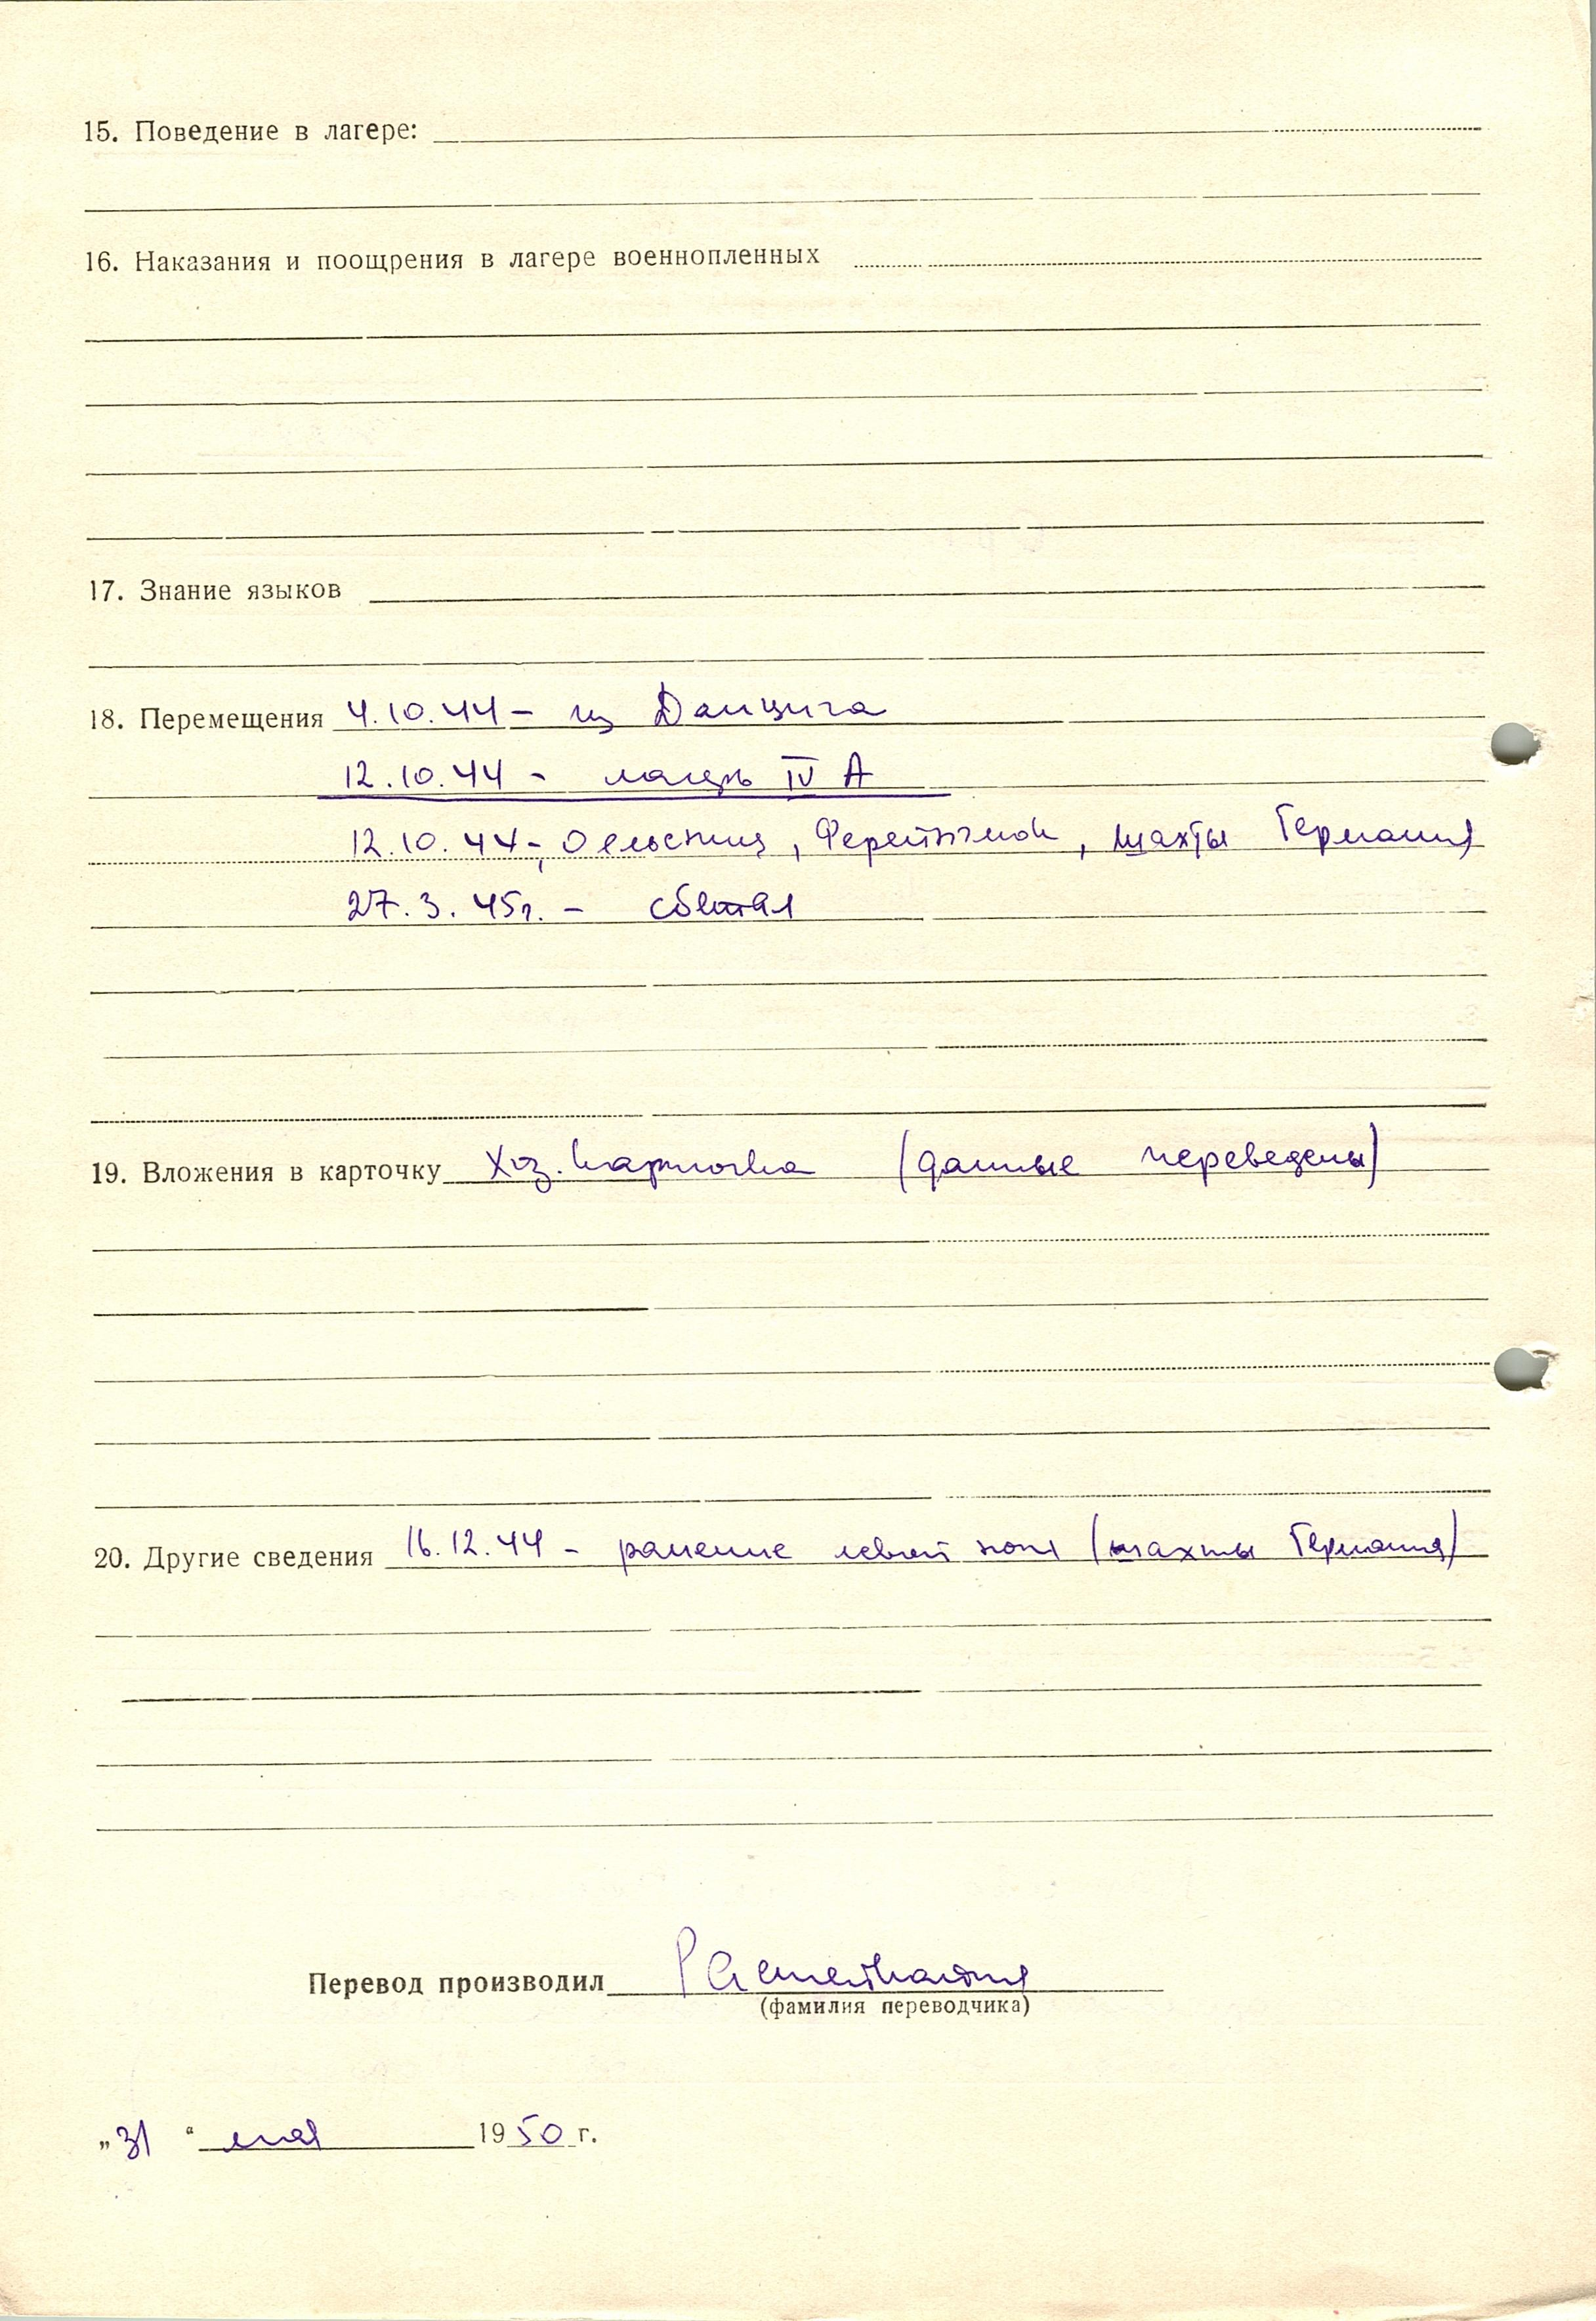 15. Поведение в лагере:
16. Наказания и поощрения в лагере военнопленных
17. Знание языков
18. Перемещения 4.10.44 - из Данцига
12.10.44 - лагерь IV А
12.10.44 - Ольсниц, шахты Германия
27.3.45г. - сбежал
19. Вложения в карточку Хоз. карточка (данные переведены)
20. Другие сведения 16.12.44 - ранение левой ноги (шахты Германия)
Перевод производил
(фамилия переводчика)
„31“ мая 1950 г.